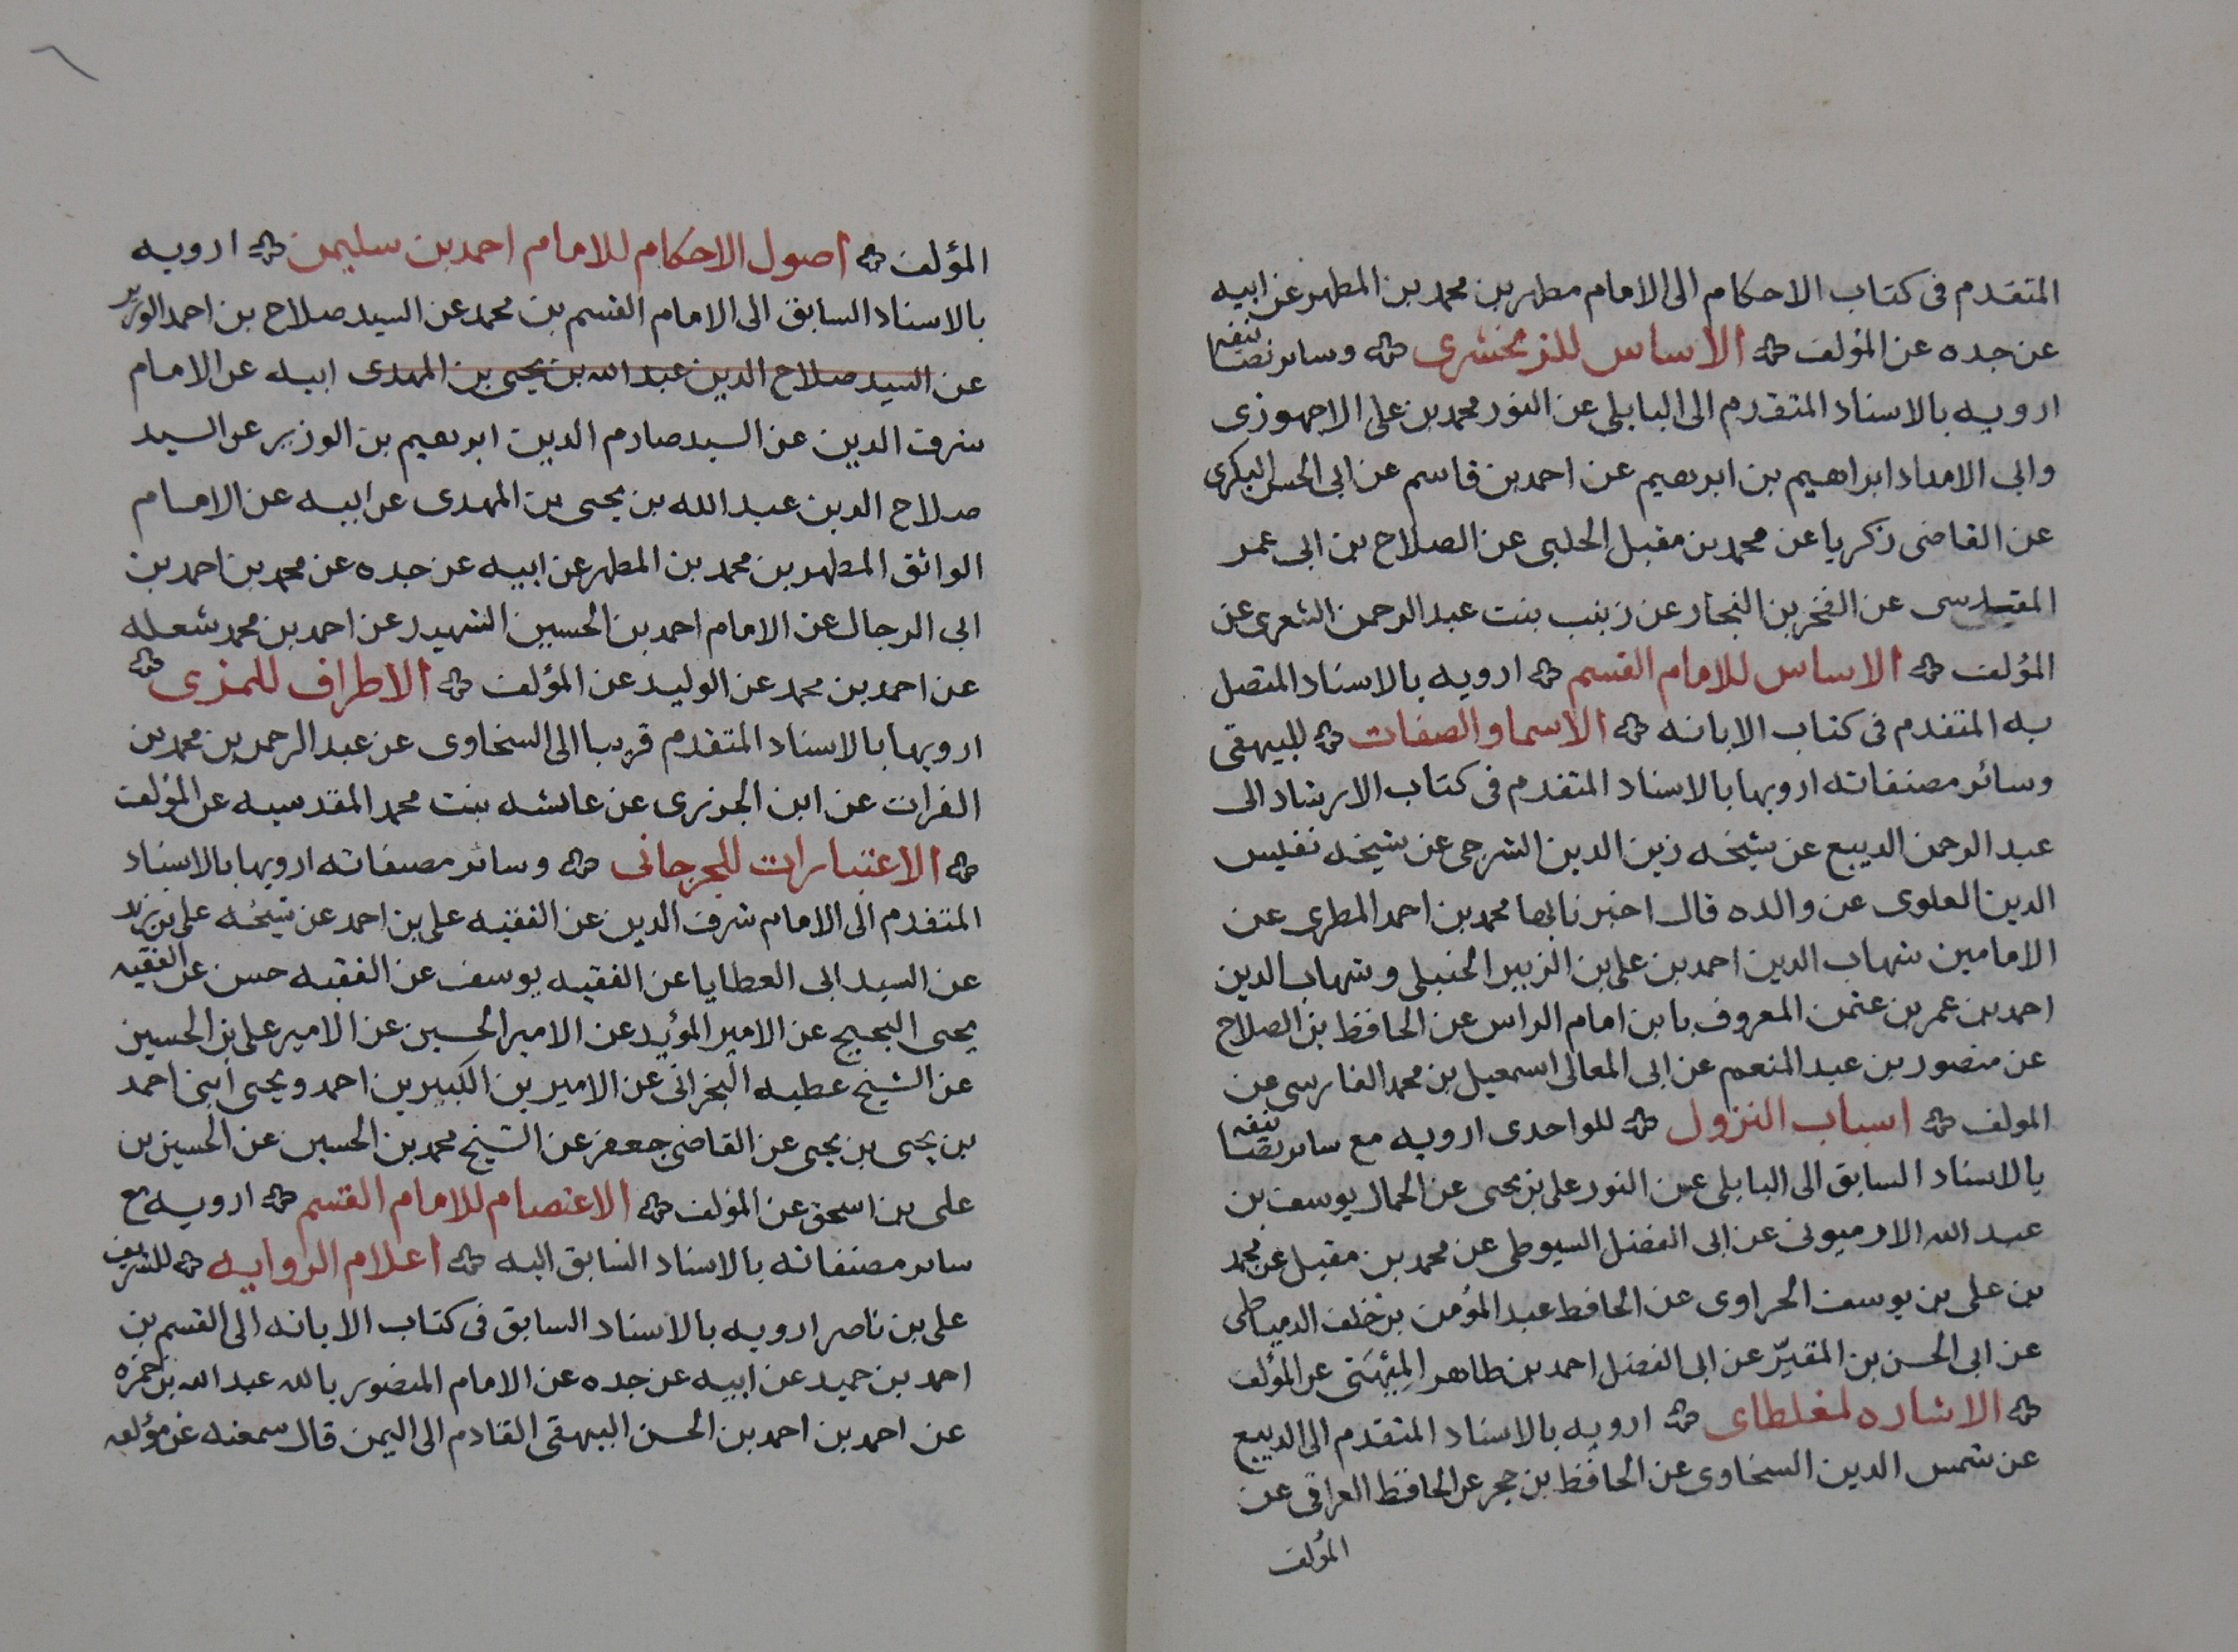 المتقدم فى كتاب الاحكام الى الامام مطهر بن محمد بن المطهر عن ابيه
عن جده عن المؤلف الاساس للزمخشرى وسائر تصانيفه
ارويه بالاسناد المتقدم الى البابلى عن النور محمد بن على الاجهوزى
وابى الامداد ابراهيم بن ابرهيم عن احمد بن قاسم عن ابى الحسن البكرى
عن القاضى زكريا عن محمد بن مقبل الحلبى عن الصلاح بن ابى عمر
المقدسى عن الفخر بن النجار عن زينب بنت عبد الرحمن الشعرى عن
المؤلف الاساس للامام القسم ارويه بالاسناد المتصل
به المتقدم فى كتاب الابانه الاسما والصفات للبيهقى
وسائر مصنفاته ارويها بالاسناد المتقدم فى كتاب الارشاد الى
عبد الرحمن الديبع عن شيخه زين الدين الشرجى عن شيخه نفيس
الدين العلوى عن والده قال اخبرنا بها محمد بن احمد المطرى عن
الامامين شهاب الدين احمد بن على بن الزبير الحنبلى وشهاب الدين
احمد بن عمر بن عثمن المعروف بابن امام الراس عن الحافظ بن الصلاح
عن منصور بن عبد المنعم عن ابى المعالى اسمعيل بن محمد الفارسى عن
المولف اسباب النزول للواحدى ارويه مع سائر تصانيفه
بالاسناد السابق الى البابلى عن النور على بن يحيى عن الجمال يوسف بن
عبد الله الارميونى عن ابى الفضل السيوطى عن محمد بن مقبل عن محمد
بن على بن يوسف الحراوى عن الحافظ عبد المؤمن بن خلف الدمياطى
عن ابى الحسن بن المقيّر عن ابى الفضل احمد بن طاهر المِيْهَنى عن المؤلف
الاشاره لمغلطاى ارويه بالاسناد المتقدم الى الديبع
عن شمس الدين السخاوى عن الحافظ بن حجر عن الحافظ العراقى عن
المؤلف
المؤلف اصول الاحكام للامام احمد بن سليمن ارويه
بالاسناد السابق الى الامام القسم بن محمد عن السيد صلاح بن احمد الوزير
عن السيد صلاح الدين عبد الله بن يحيى بن المهدى ابيه عن الامام
شرف الدين عن السيد صارم الدين ابرهيم بن الوزير عن السيد
صلاح الدين عبد الله بن يحيى بن المهدى عن ابيه عن الامام
الواثق المطهر بن محمد بن المطهر عن ابيه عن جده عن محمد بن احمد بن
ابى الرجال عن الامام احمد بن الحسين الشهيد عن احمد بن محمد شعله
عن احمد بن محمد عن الوليد عن المؤلف الاطراف للمزى
ارويها بالاسناد المتقدم قريبا الى السخاوى عن عبد الرحمن بن محمد بن
الفرات عن ابن الجزرى عن عائشه بنت محمد المقدسيه عن المؤلف
الاعتبارات للجرجانى وسائر مصنفاته ارويها بالاسناد
المتقدم الى الامام شرف الدين عن الفقيه على بن احمد عن شيخه على بن زيد
عن السيد ابى العطايا عن الفقيه يوسف عن الفقيه حسن عن الفقيه
يحيى البحيبح عن الامير المؤيد عن الامير الحسين عن الامير على بن الحسين
عن الشيخ عطيه النجرانى عن الاميرين الكبيرين احمد ويحيى ابنى احمد
بن يحيى بن يحيى عن القاضى جعفر عن الشيخ محمد بن الحسين عن الحسين بن
على بن اسحق عن المؤلف الاعتصام للامام القسم ارويه مع
سائر مصنفاته بالاسناد السابق اليه اعلام الروايه للشريف
على بن ناصر ارويه بالاسناد السابق فى كتاب الابانه الى القسم بن
احمد بن حميد عن ابيه عن جده عن الامام المنصور بالله عبد الله بن حمزه
عن احمد بن احمد بن الحسن البيهقى القادم الى اليمن قال سمعته عن مؤلفه